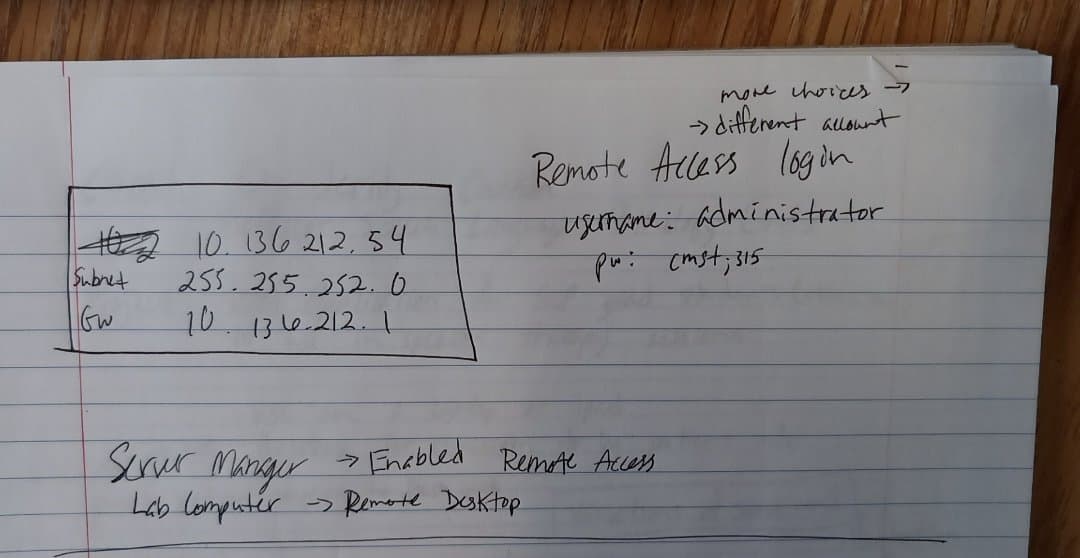 more choices →
→ different account
Remote Access login
username: administrator
pw: cmst;315
10.136 212.54
Subnet 255.255.252.0
Gw 10.136.212.1
Server Manager → Enabled Remote Access
Lab Computer → Remote Desktop